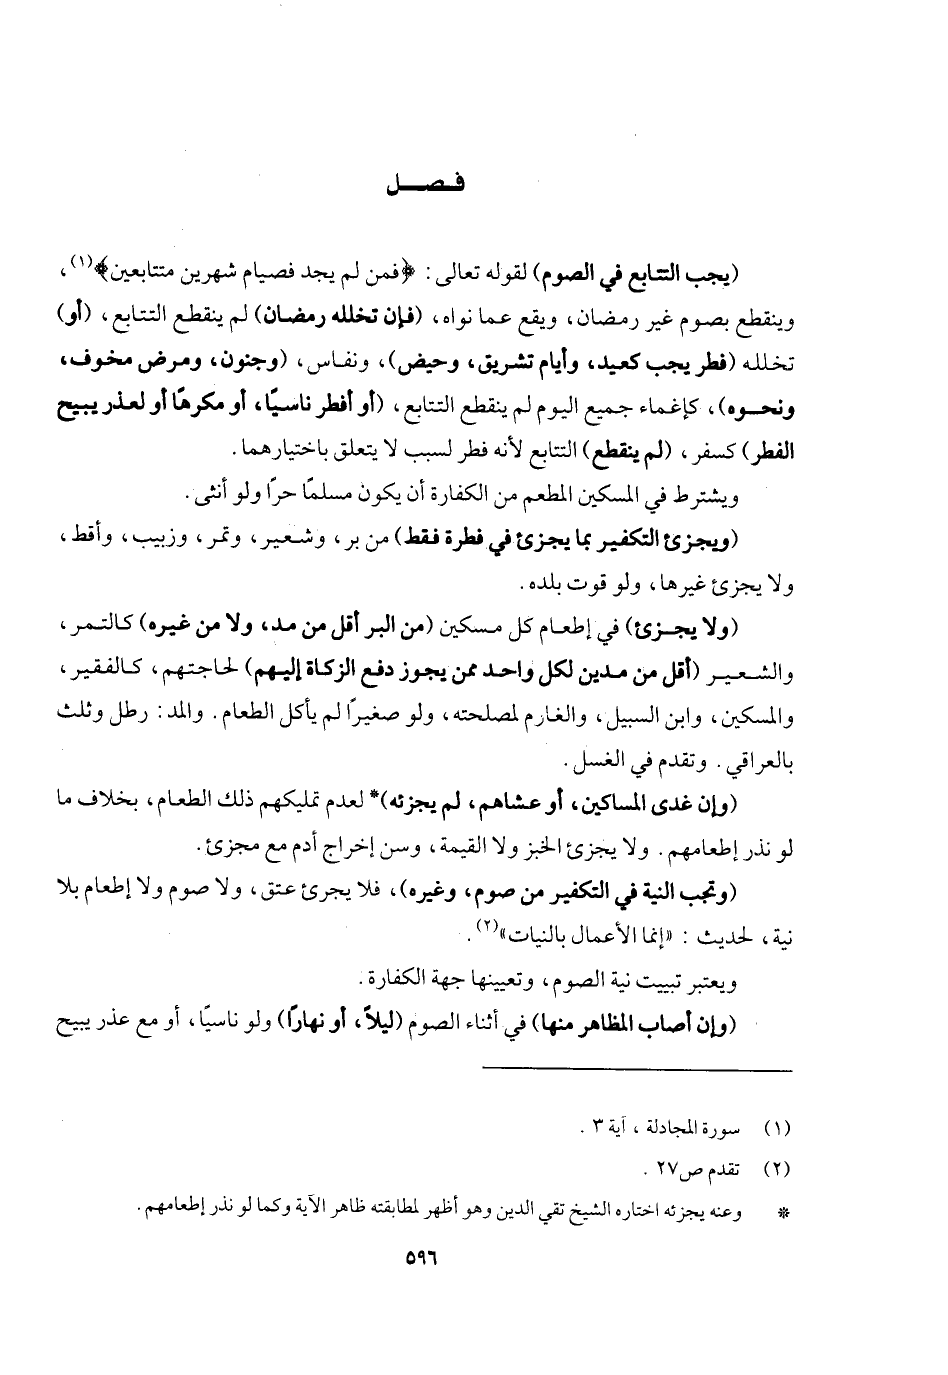 فـصـــل
(يجب التتابع في الصوم) لقوله تعالى : ﴿فمن لم يجد فصيام شهرين متتابعين﴾(١)،
وينقطع بصوم غير رمضان، ويقع عما نواه، (فإن تخلله رمضان) لم ينقطع التتابع، (أو)
تخلله (فطر يجب كعيد، وأيام تشريق، وحيض)، ونفاس، (وجنون، ومرض مخوف،
ونحـوه)، كإغماء جميع اليوم لم ينقطع التتابع، (أو أفطر ناسيًا، أو مكرهًا أو لعذر يبيح
الفطر) كسفر، (لم ينقطع) التتابع لأنه فطر لسبب لا يتعلق باختيارهما.
ويشترط في المسكين المطعم من الكفارة أن يكون مسلمًا حرًا ولو أنثى.
(ويجزئ التكفير بما يجزئ في فطرة فقط) من بر، وشعير، وتمر، وزبيب، وأقط،
ولا يجزئ غيرها، ولو قوت بلده.
(ولا يجـزئ) في إطعام كل مسكين (من البر أقل من مد، ولا من غيره) كالتمر،
والشعير (أقل من مدين لكل واحد ممن يجوز دفع الزكاة إليهم) لحاجتهم، كالفقير،
والمسكين، وابن السبيل، والغارم لمصلحته، ولو صغيرًا لم يأكل الطعام. والمد: رطل وثلث
بالعراقي. وتقدم في الغسل.
(وإن غدى المساكين، أو عشاهم، لم يجزئه)* لعدم تمليكهم ذلك الطعام، بخلاف ما
لو نذر إطعامهم. ولا يجزئ الخبز ولا القيمة، وسن إخراج أدم مع مجزئ.
(وتجب النية في التكفير من صوم، وغيره)، فلا يجرئ عتق، ولا صوم ولا إطعام بلا
نية، لحديث : «إنما الأعمال بالنيات»(٢).
ويعتبر تبييت نية الصوم، وتعيينها جهة الكفارة.
(وإن أصاب المظاهر منها) في أثناء الصوم (ليلاً، أو نهارًا) ولو ناسيًا، أو مع عذر يبيح
(١) سورة المجادلة ، آية ٣ .
(٢) تقدم ص٢٧ .
* وعنه يجزئه اختاره الشيخ تقي الدين وهو أظهر لمطابقته ظاهر الآية وكما لو نذر إطعامهم.
٥٩٦